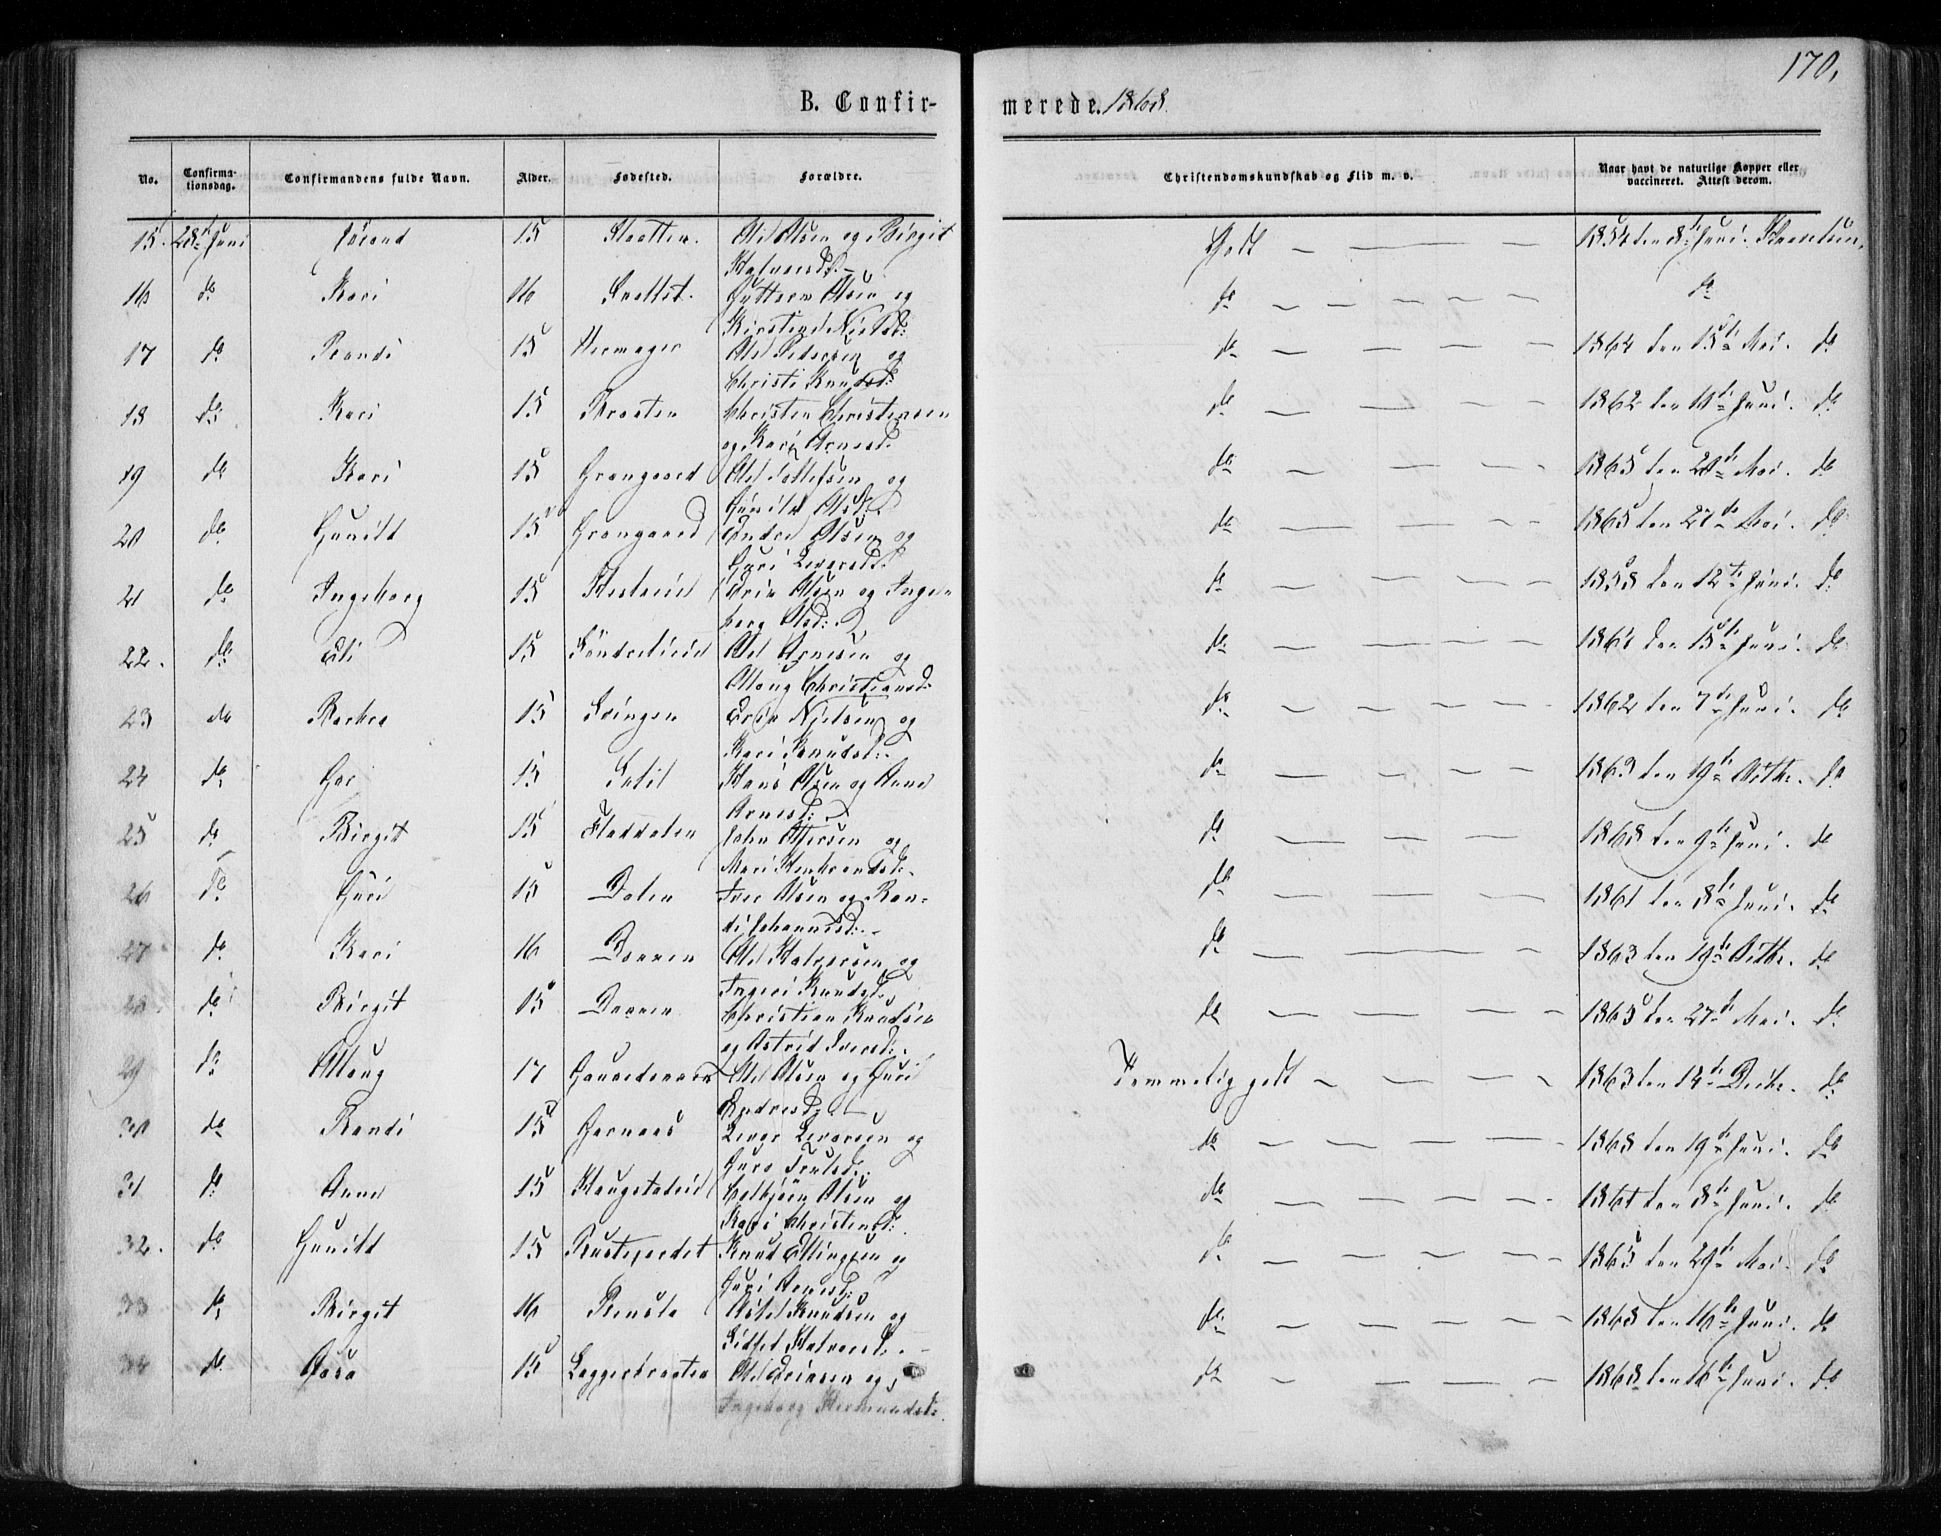 170.
B. Confirmerede. 1868.
No. Confirmationsdag. Confirmandens fulde Navn. Alder. Fødested. Forældre. Christendomskundskab og Flid m. v. Naar havt de naturlige Kopper eller vaccineret. Attest derom.
15. 28de Juni Jörand 15 Slaatten. Ole Olsen og Birgit Godt 1854 den 8de Juni.
Halvorsd.
16 do Kari 16 Guttorm Olsen og do do
Kirstine Nielsd:
17 do Randi 15 Hermager Ole Pedersen og do 1864 den 15de Mai. do
Christi Knudsd:
18 do Kari 15 Braaten Christen Christensen do 1862 den 11te Juni. do
og Kari Arnesd.
19 do Kari 15 Grangaard Ole Tollefsen og do 1865 den 29de Mai. do
Gunild Olsd:
20 do Gunild 15 Grangaard Andre Olsen og do 1865 den 27de Mai. do
Guri Leversd:
21 do Ingeborg 15 Olsen og Inge- do 1858 den 12te Juni. do
borg Olsd:
22. do Eli 15 Söndrelien Ole Arnesen og do 1861 den 15de Juni. do
Aloug Christiansd:
23 do Barbra 15 Svingen Erik Nielsen og do 1862 den 7de Juni. do
Kari Knudsd:
24 do Gro 15 Hans Olsen og Anne do 1863 den 19de Octbr. do
Arnesd:
25 do Birgit 15 Fladdalen John Ottersen og do 1868 den 9de Juni. do
Mari Hembrandsd:
26 do Guri 15 Dalen Iver Olsen og Ran- do 1861 den 8de Juni. do
di Johannesd:
27 do Kari 16 Ole Halvorsen og do 1863 den 19de Octbr. do
Ingri Knudsd:
28 do Birgit 15 Christian Knudsen do 1865 den 27de Mai. do
og Astrid Iversd:
29 do Alloug 17 Ole Olsen og Guri Temmelig godt 1863 den 14de Decbr. do
Andresd:
30 do Randi 15 Garnaas Lever Leversen og do 1868 den 19de Juni. do
Guro Truлsd:
31 do Anne 15 Haugstadeie Colbjörn Olsen og do 1861 den 8de Juni. do
Kari Christensd:
32. do Gunild 15 Rustejordet Knud Ellingsen og do 1865 den 29de Mai. do
Guri Arnesd:
33 do Birgit 16 Aslak Knudsen og do 1868 den 16de Juni. do
Sidsel Halvorsd:
34 do Aasa 15 Ole og do 1868 den 16de Juni. do
Ingeborg Hermundsd: